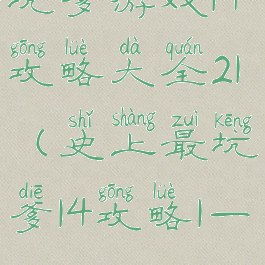 坑爹游戏11
gōng lüè dà quán
攻略大全21
shǐ shàng zuì kēng
(史上最坑
diē gōng lüè
爹14攻略1一